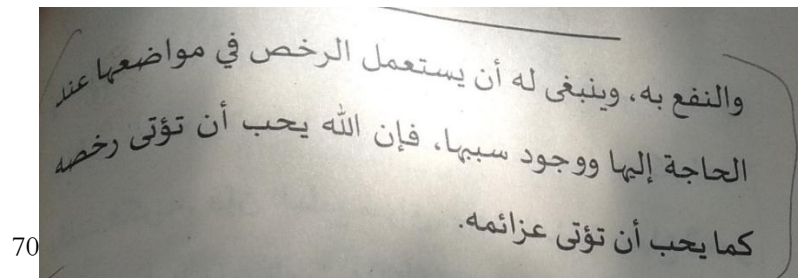 والنفع به، وينبغى له أن يستعمل الرخص في مواضعها عند
الحاجة إليها ووجود سببها، فإن الله يحب أن تؤتى رخصه
كما يحب أن تؤتى عزائمه.
70